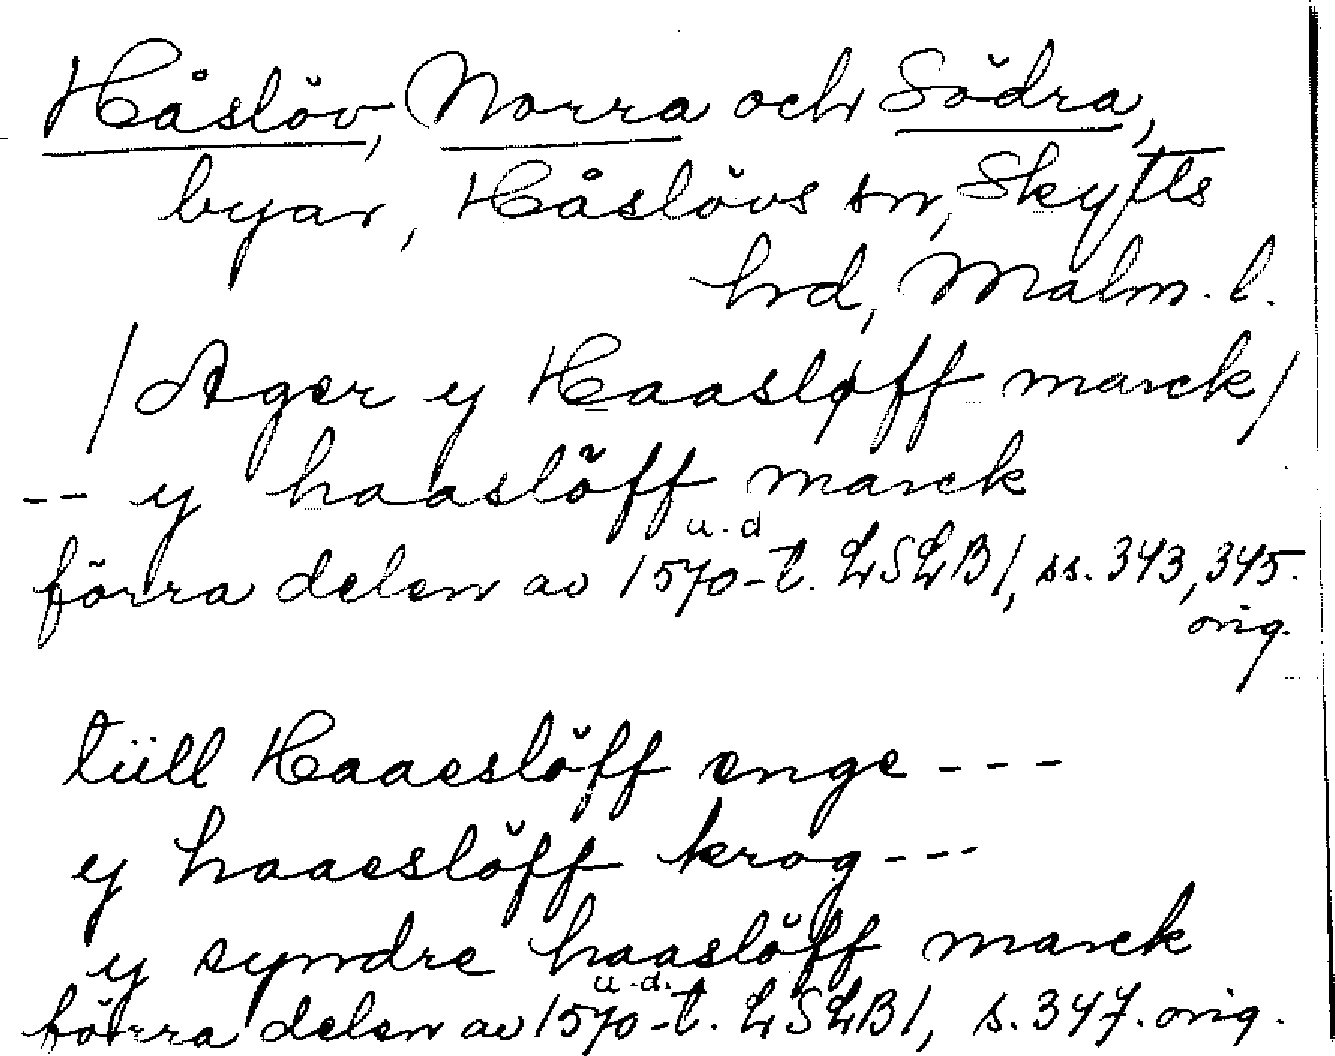 Håslöv, Norra och Södra,
byar, Håslövs sn, Skytts
hrd, Malm. l.
/Ager y Haasløff marck/
-- y haaslöff marck
u. d
förra delen av 1570-t. LSLB1, ss. 343, 345.
orig.
tiill Haaeslöff enge ---
y haaeslöff krog ---
y syndre haaslöff marck
u. d.
förra delen av 1570-t. LSLB1, s. 347. orig.